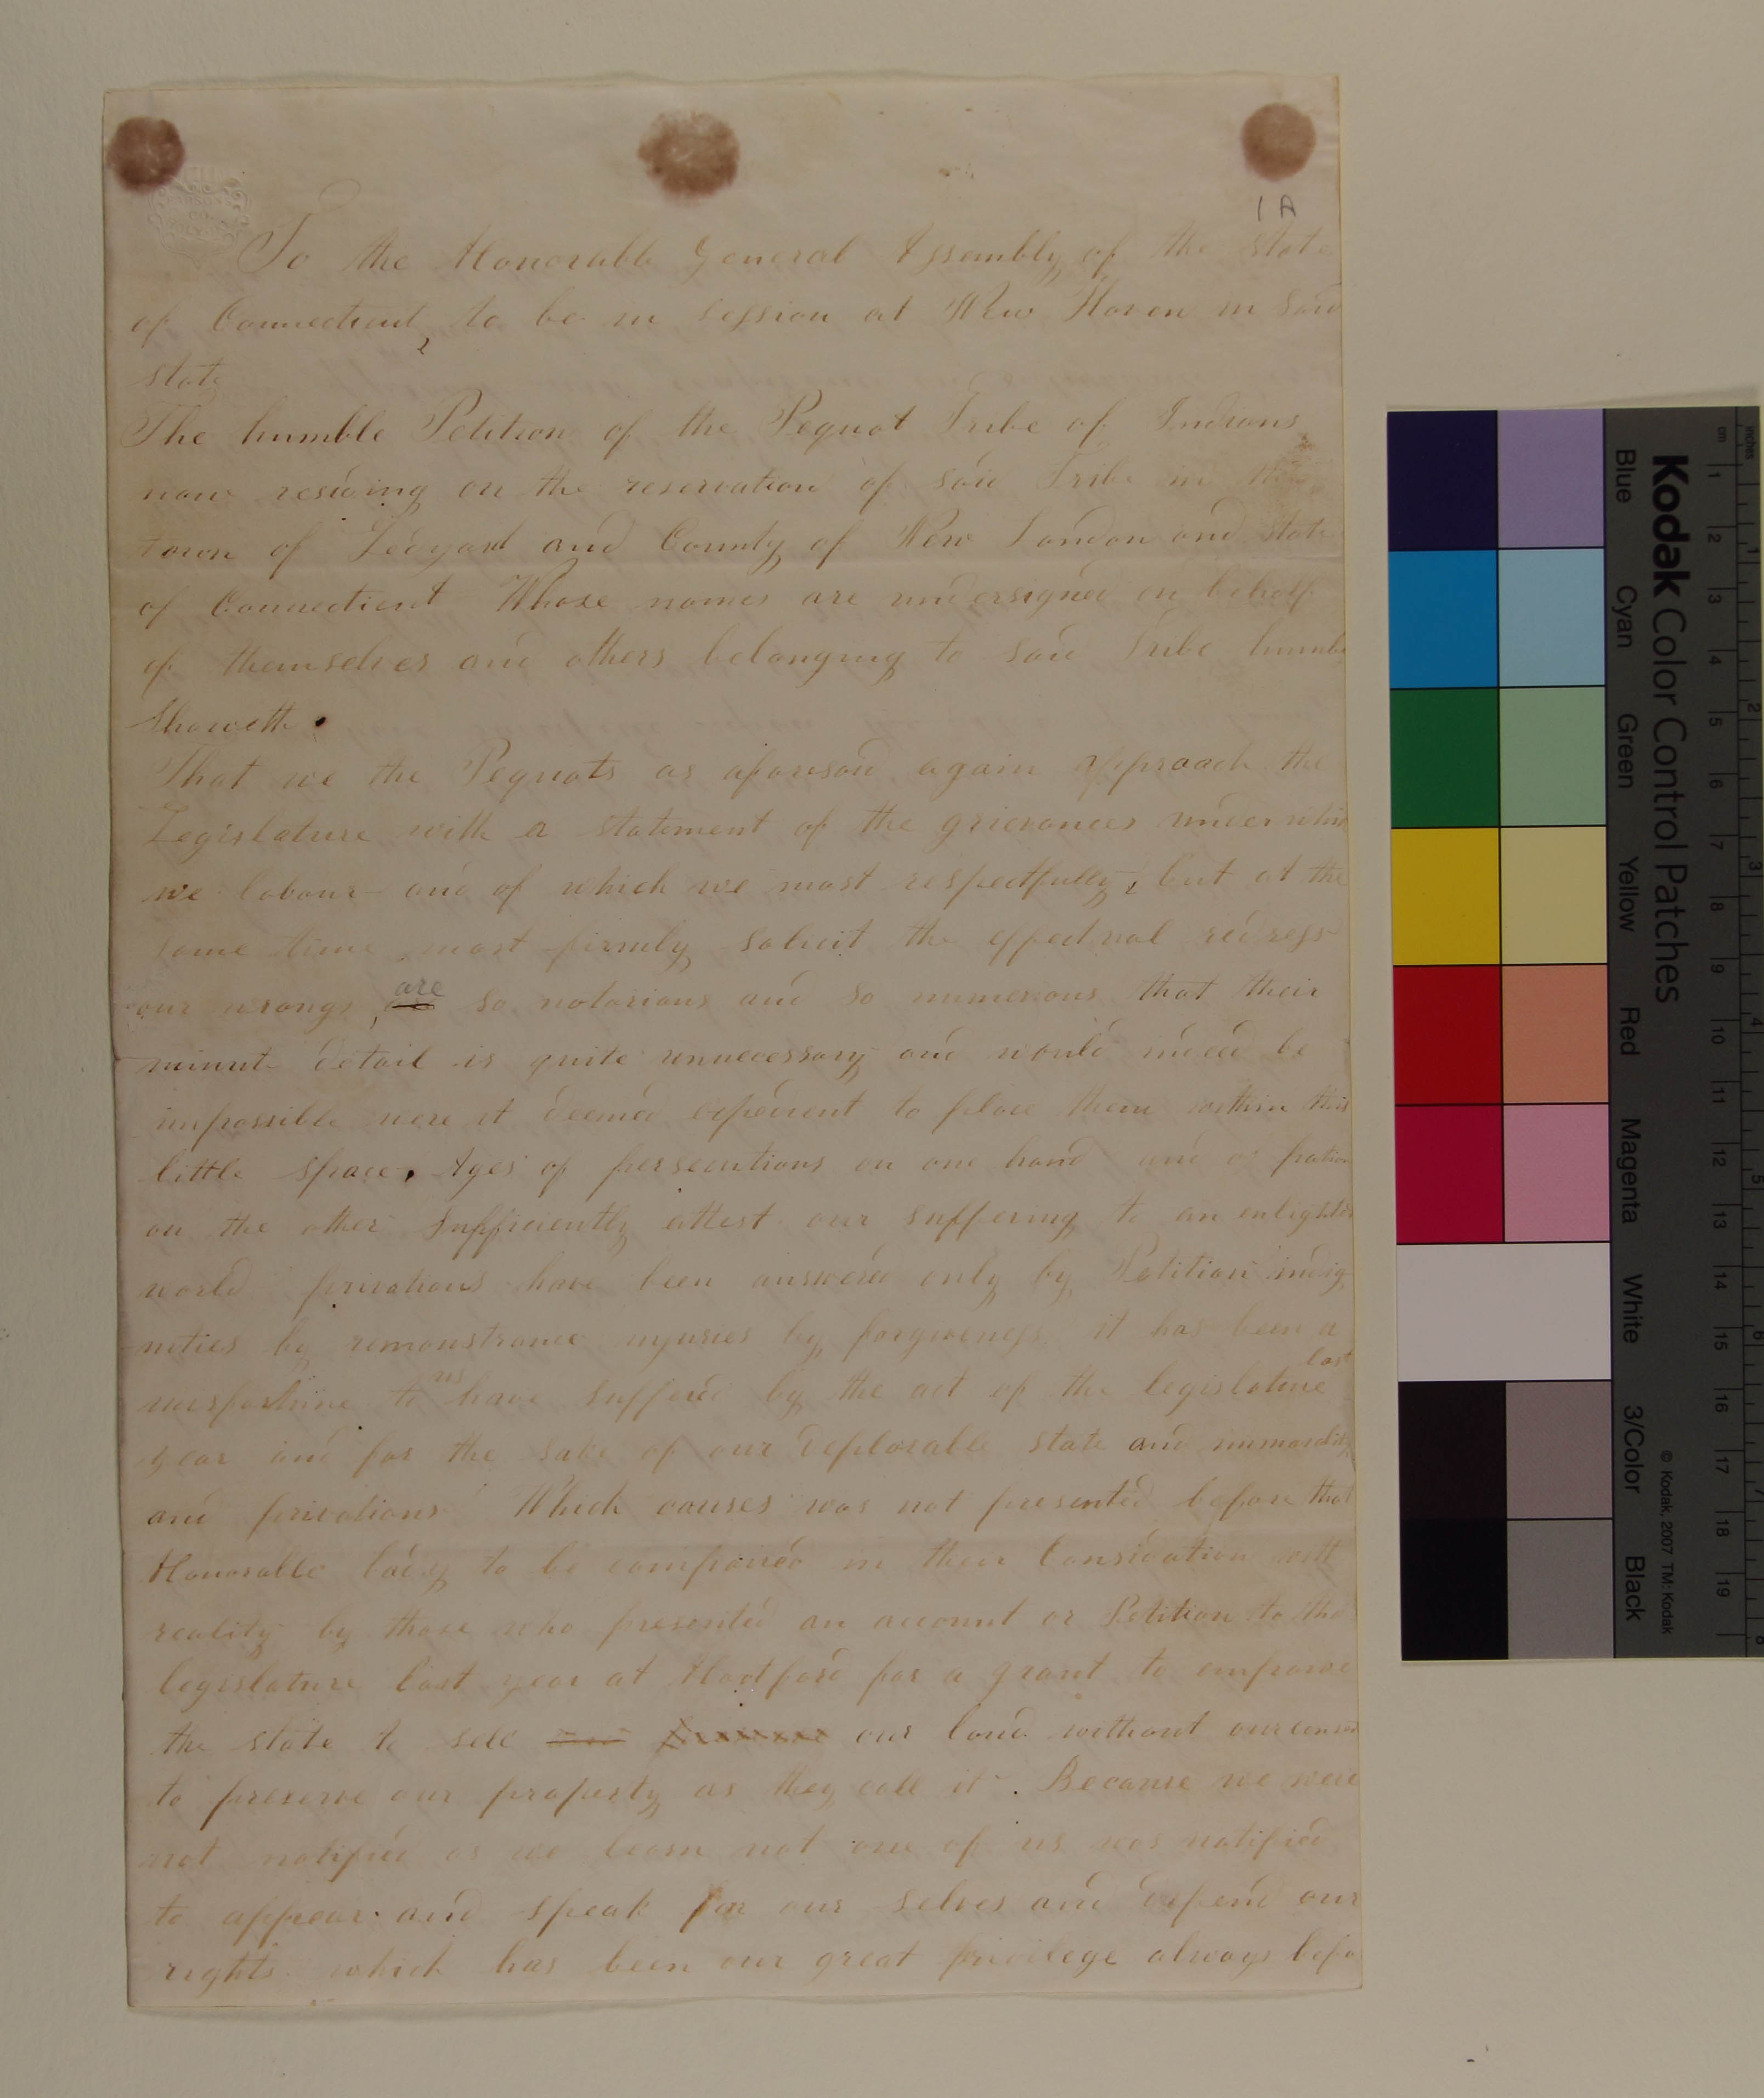 1A
To the Honorable General Assembly of the State
of Connecticut, to be in session at New Haven in said
state
The humble Petition of the Pequot Tribe of Indians
now residing on the reservation of said Tribe in the
town of Ledyard and County of New London and State
of Connecticut Whose names are undersigned on behalf
of themselves and others belonging to said Tribe humbl
Showeth.
That we the Pequots as aforesaid again approach the
Legislature with a statement of the grievances under whic
we labour and of which we most respectfully, but at the
same time most firmly solicit the effectual redress
our wrongs, are so notorious and so numerous that their
minute detail is quite unnecessary and would indeed be
impossible were it deemed expedient to place them within this
little space. Ages of persecutions on one hand and of patien
on the other sufficiently attest our suffering to an enlighte
world privations have been answered only by Petition indig
nities by remonstrance injuries by forgiveness. it has been a
last
misfortune to us have sufferd by the act of the legislature
year and for the sake of our deplorable state and
and privations Which causes was not presented before that
Honorable body to be compaired in their Considation with
reality by those who presented an account or Petition to the
legislature last year at Hartford for a grant to empower
the state to sell our land without our consen
to preserve our property as they call it. Because we were
not notified as we learn not one of us was notified
to appear and speak for our selves and defend our
rights which has been our great privilege always befo
Kodak Color Control Patches
Blue Cyan Green Yellow Red Magenta White 3/Color Black
© Kodak, 2007 TM: Kodak
inches 1 2 3 4 5 6 7 8
cm 1 2 3 4 5 6 7 8 9 10 11 12 13 14 15 16 17 18 19